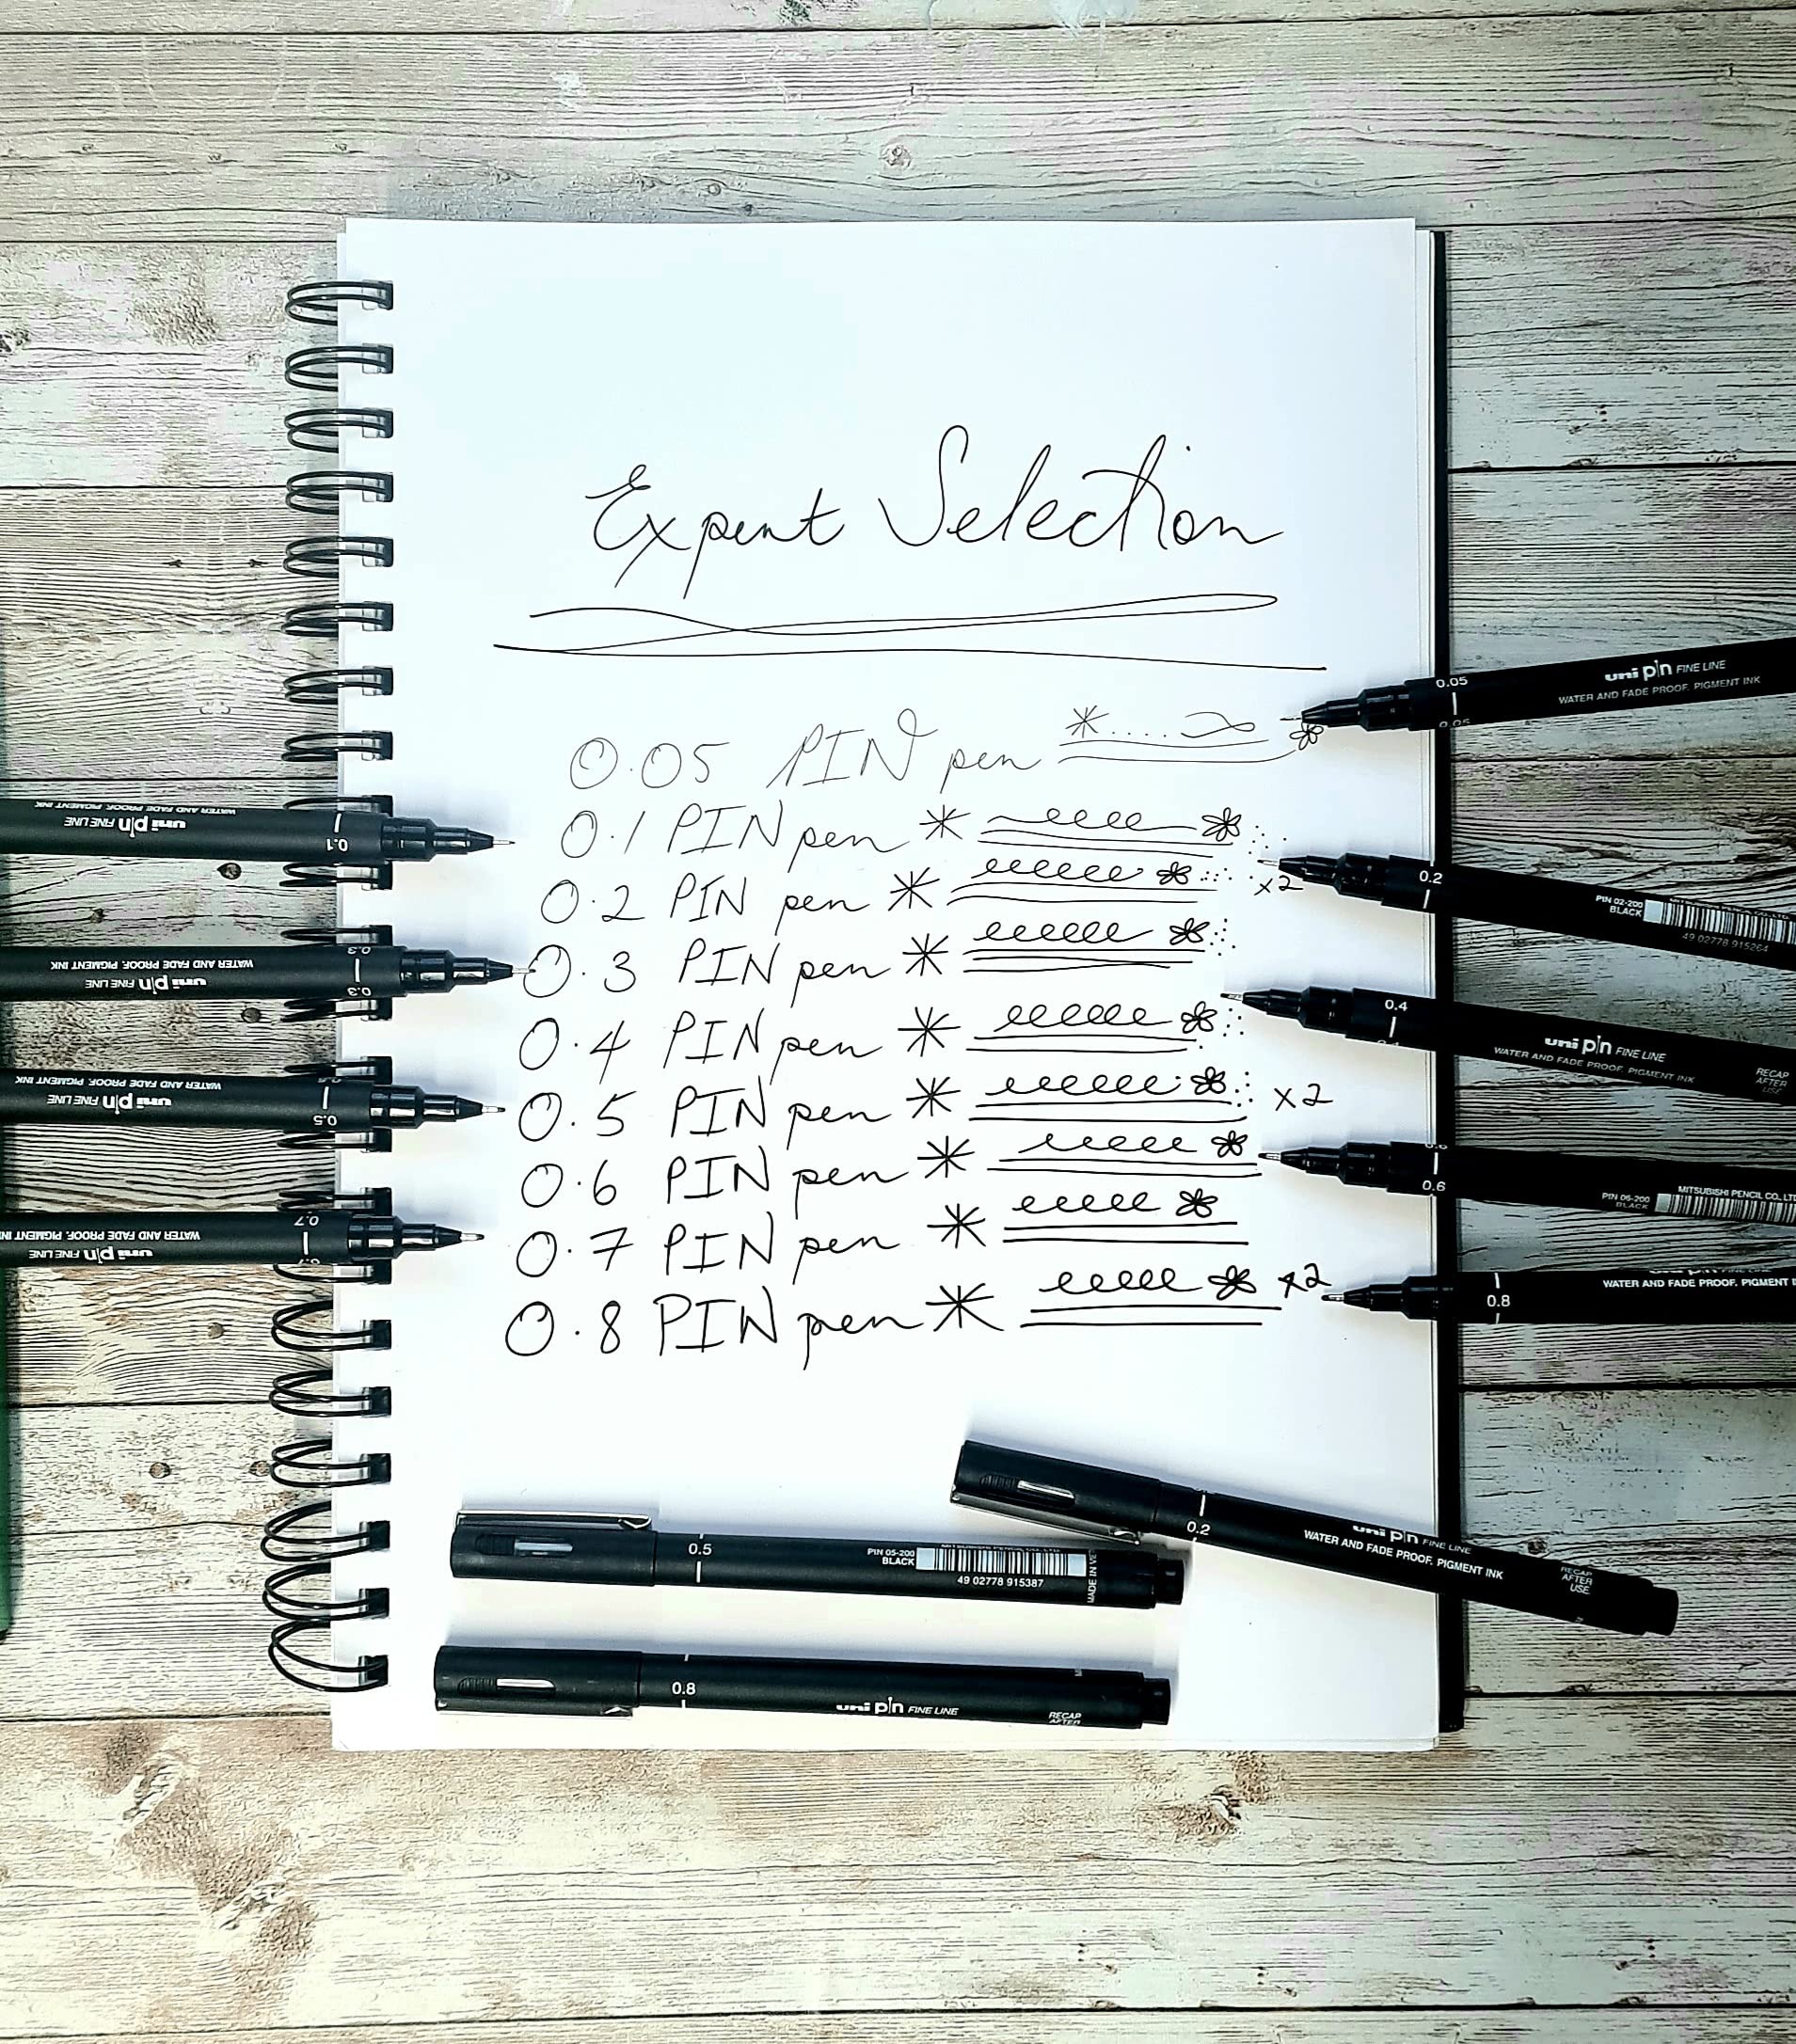 Expert Selection
0.05 PIN pen
0.1 PIN pen
0.2 PIN pen x2
0.3 PIN pen
0.4 PIN pen
0.5 PIN pen x2
0.6 PIN pen
0.7 PIN pen
0.8 PIN pen x2
0.05
0.05
uni pin FINE LINE
WATER AND FADE PROOF. PIGMENT INK
0.1
uni pin FINE LINE
WATER AND FADE PROOF. PIGMENT INK
0.2
PIN 02-200
BLACK
MITSUBISHI PENCIL CO., LTD.
49 02778 915264
0.3
0.3
uni pin FINE LINE
WATER AND FADE PROOF. PIGMENT INK
0.4
uni pin FINE LINE
WATER AND FADE PROOF. PIGMENT INK
RECAP
AFTER
USE
0.5
uni pin FINE LINE
WATER AND FADE PROOF. PIGMENT INK
0.6
0.6
PIN 06-200
BLACK
MITSUBISHI PENCIL CO., LTD
0.7
0.7
uni pin FINE LINE
WATER AND FADE PROOF. PIGMENT INK
0.8
WATER AND FADE PROOF. PIGMENT
0.2
uni pin FINE LINE
WATER AND FADE PROOF. PIGMENT INK
RECAP
AFTER
USE
0.5
PIN 05-200
BLACK
MITSUBISHI PENCIL CO., LTD.
49 02778 915387
MADE IN
0.8
uni pin FINE LINE
RECAP
AFTER